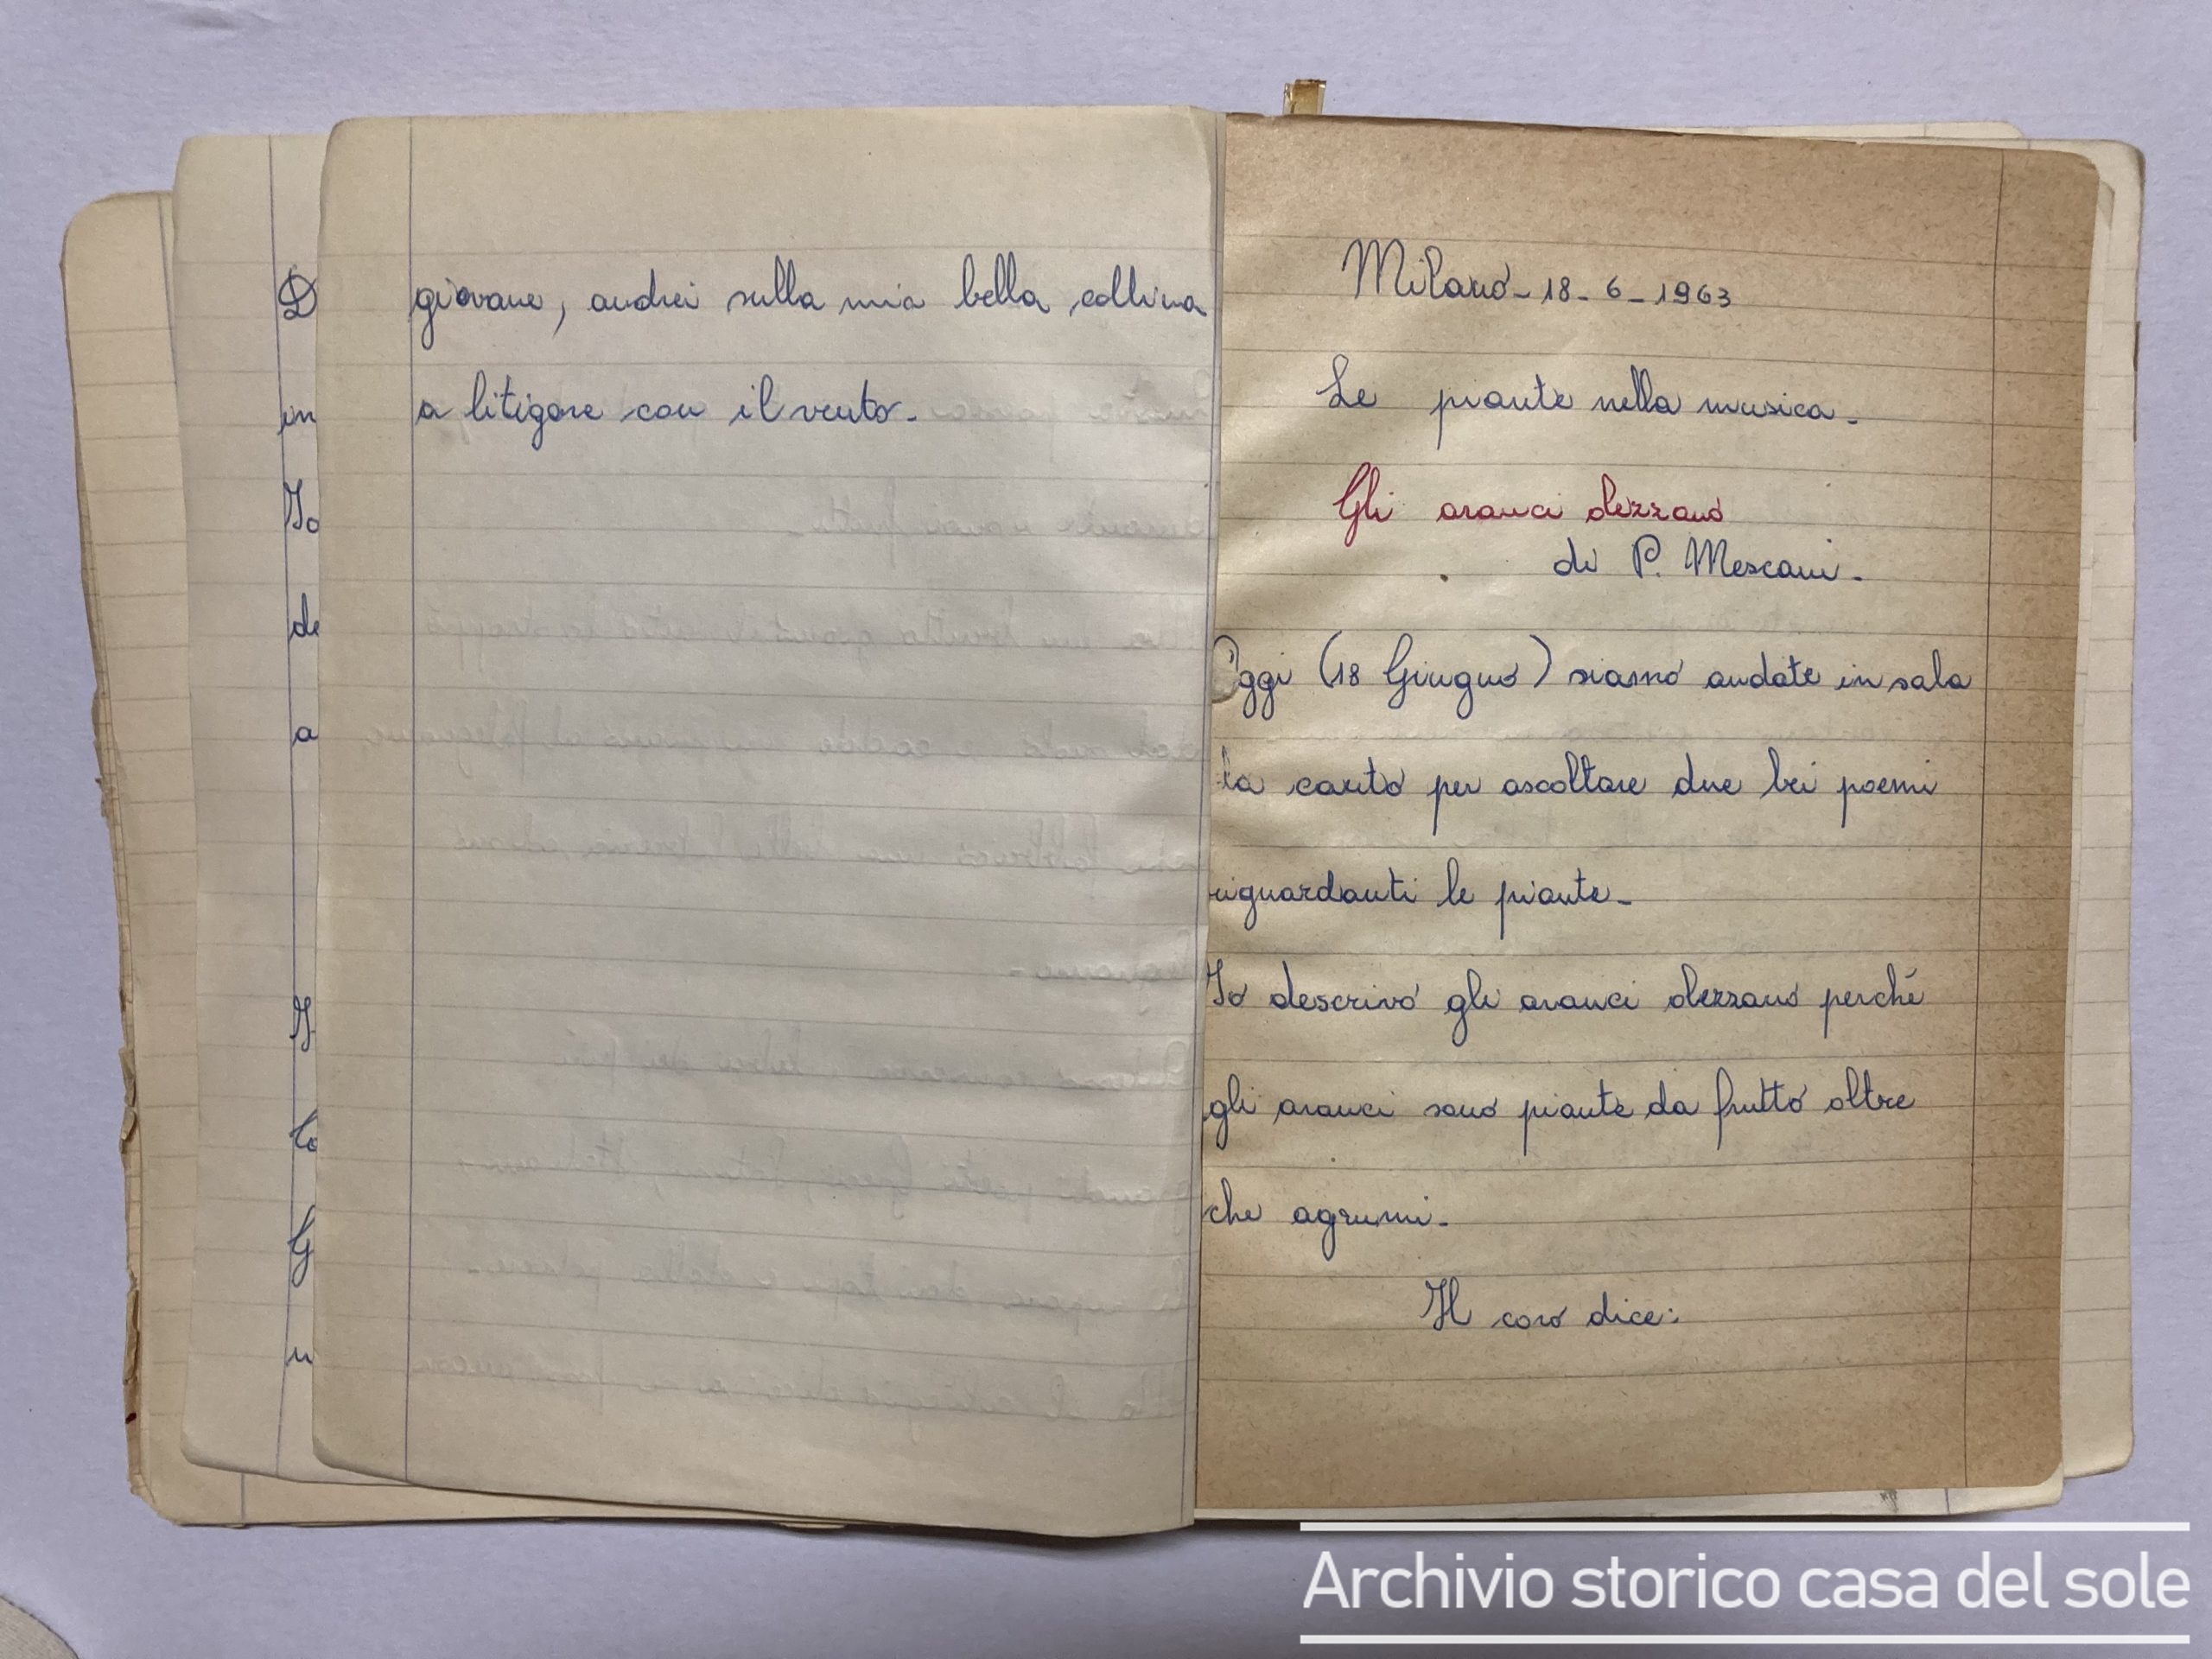 giovane, andrei sulla mia bella collina
a litigare con il vento.
Milano - 18 - 6 - 1963
Le piante nella musica.
Gli aranci olezzano
di P. Mescani.
Oggi (18 Giugno) siamo andate in sala
la canto per ascoltare due bei poemi
riguardanti le piante.
Io descrivo gli aranci olezzano perché
gli aranci sono piante da frutto oltre
che agrumi.
Il coro dice:
D
in
Io
de
a
I
lo
G
u
Archivio storico casa del sole